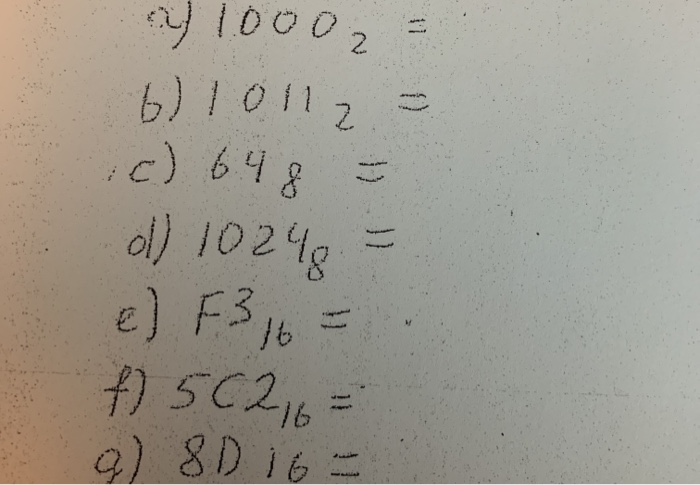 a) 1000₂ =
b) 1011₂ =
c) 64₈ =
d) 1024₈ =
e) F3₁₆ =
f) 5C2₁₆ =
g) 8D 16 =